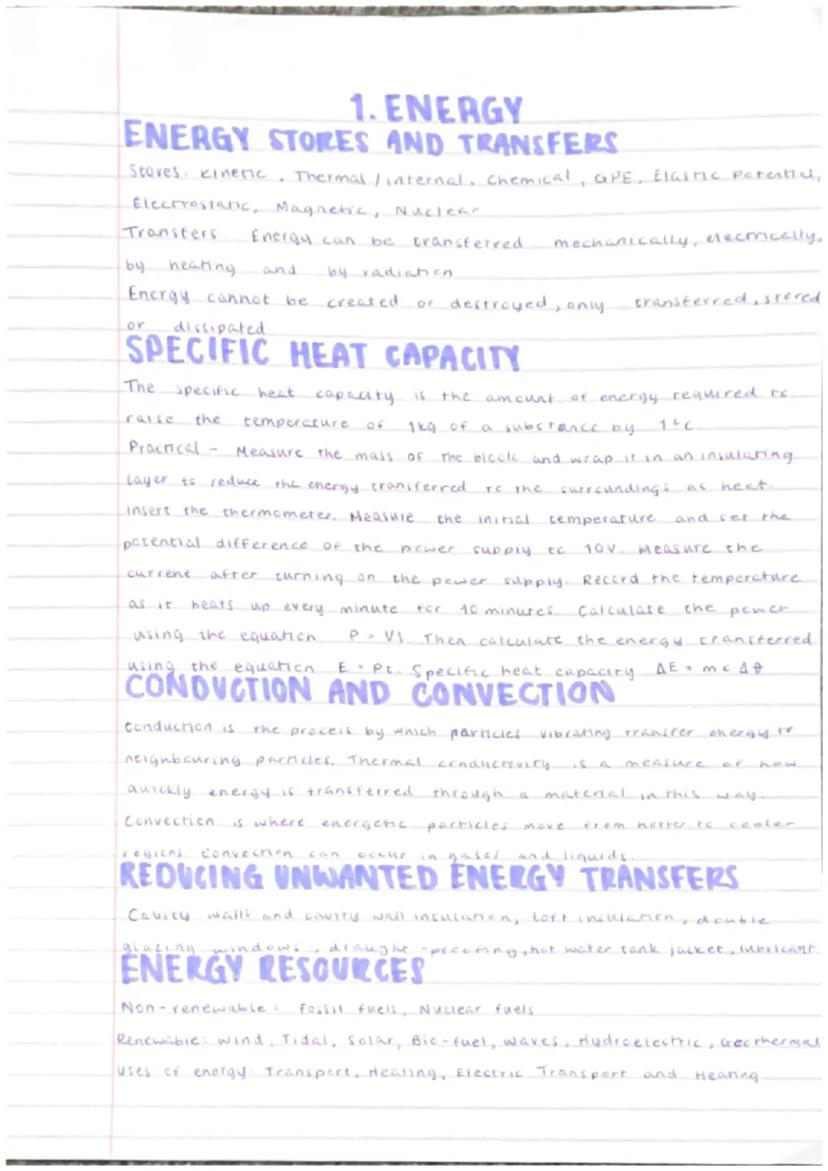 1. ENERGY
ENERGY STORES AND TRANSFERS
Stores: Kinetic, Thermal / internal, Chemical, GPE, Elastic Potential,
Electrostatic, Magnetic, Nuclear
Transfers: Energy can be transferred mechanically, electrically,
by heating and by radiation
Energy cannot be created or destroyed, only transferred, stored
or dissipated
SPECIFIC HEAT CAPACITY
The specific heat capacity is the amount of energy required to
raise the temperature of 1kg of a substance by 1°C.
Practical - Measure the mass of the block and wrap it in an insulating
layer to reduce the energy transferred to the surroundings as heat.
insert the thermometer. Measure the initial temperature and set the
potential difference of the power supply to 10V. Measure the
current after turning on the power supply. Record the temperature
as it heats up every minute for 10 minutes. Calculate the power
using the equation P = VI. Then calculate the energy transferred
using the equation E = Pt. Specific heat capacity ΔE = mcΔθ
CONDUCTION AND CONVECTION
Conduction is the process by which particles vibrating transfer energy to
neighbouring particles. Thermal conductivity is a measure of how
quickly energy is transferred through a material in this way.
Convection is where energetic particles move from hotter to cooler
regions. Convection can occur in gases and liquids.
REDUCING UNWANTED ENERGY TRANSFERS
Cavity walls and cavity wall insulation, Loft insulation, double
glazing windows, draught-proofing, hot water tank jacket, lubricant
ENERGY RESOURCES
Non-renewable: Fossil fuels, Nuclear fuels
Renewable: Wind, Tidal, Solar, Bio-fuel, waves, Hydroelectric, Geothermal
Uses of energy: Transport, Heating, Electric Transport and Heating